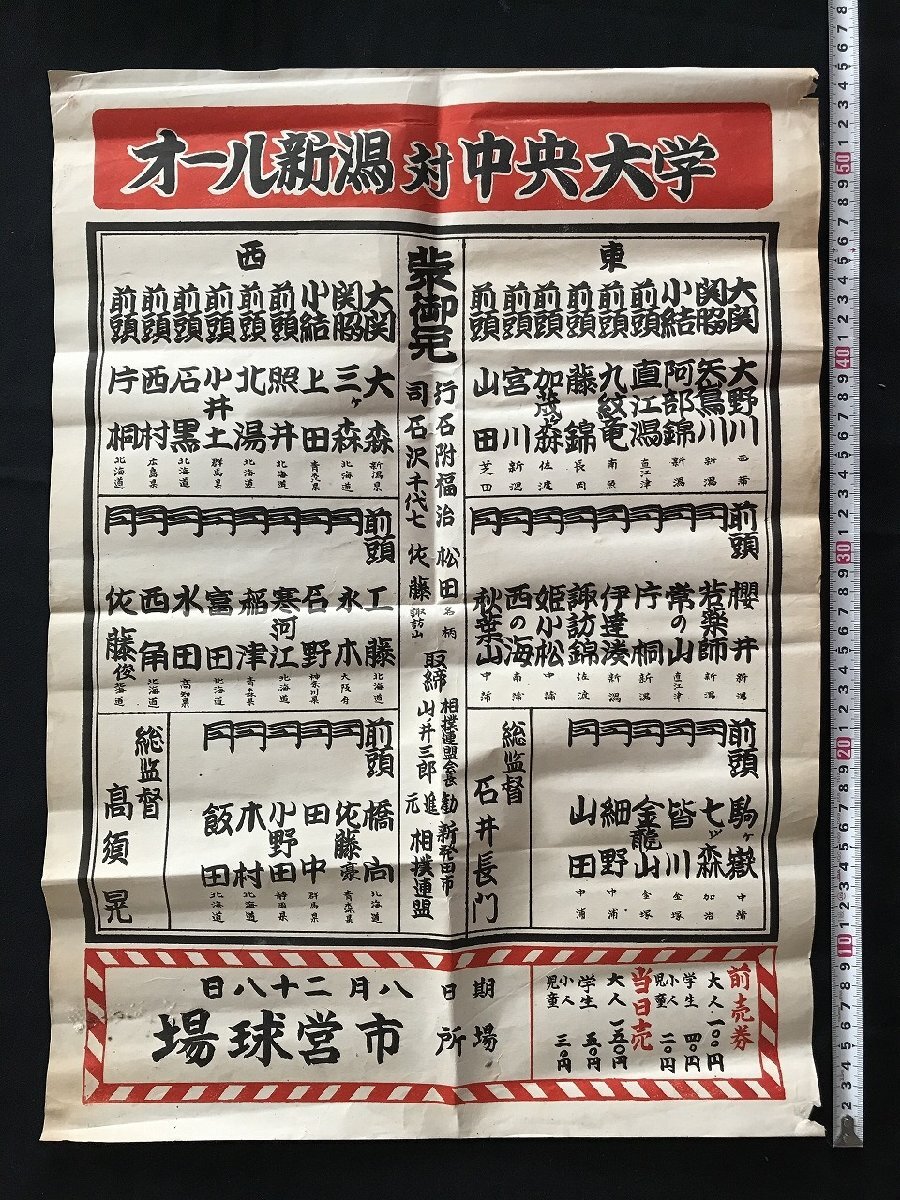 オール新潟対中央大学
東
大関 大野川
関脇 矢鳥川 新潟
小結 阿部錦 新潟
前頭 直江潟 直江津
前頭 九紋竜 南魚
前頭 藤錦 長岡
前頭 加茂ヶ森 佐渡
前頭 宮川 新潟
前頭 山田
前頭 櫻井 新潟
同 若薬師 新潟
同 常の山 直江津
同 片桐 新潟
同 伊達湊 新潟
同 諏訪錦 佐渡
同 姫小松 中蒲
同 西の海 南蒲
同 秋葉山 中蒲
前頭 駒ヶ嶽 中蒲
同 七ッ森 加治
同 皆川 金塚
同 金龍山 金塚
同 細野 中浦
同 山田 中浦
総監督 石井長門
蒙御免
行司
石附福治
石沢千代七
松田
佐藤 諏訪山
取締
相撲連盟会長
山井三郎
勧進元
新発田市
相撲連盟
西
大関 大森 新潟県
関脇 三ヶ森 北海道
小結 上田 青森県
前頭 照井 北海道
前頭 北湯 北海道
前頭 小井土 群馬県
前頭 石黒 北海道
前頭 西村 広島県
前頭 片桐 北海道
前頭 工藤 北海道
同 永木 大阪府
同 石野 神奈川県
同 寒河江 北海道
同 稲津 青森県
同 富田 北海道
同 水田 高知県
同 西角 北海道
同 佐藤俊 北海道
前頭 橋向 北海道
同 佐藤豪 青森県
同 田中 群馬県
同 小野田 静岡県
同 木村 北海道
同 飯田 北海道
総監督 高須晃
前売券
大人 一〇〇円
学生 四〇円
小人児童 二〇円
当日売
大人 一五〇円
学生 五〇円
小人児童 三〇円
期日 八月二十八日
場所 市営球場